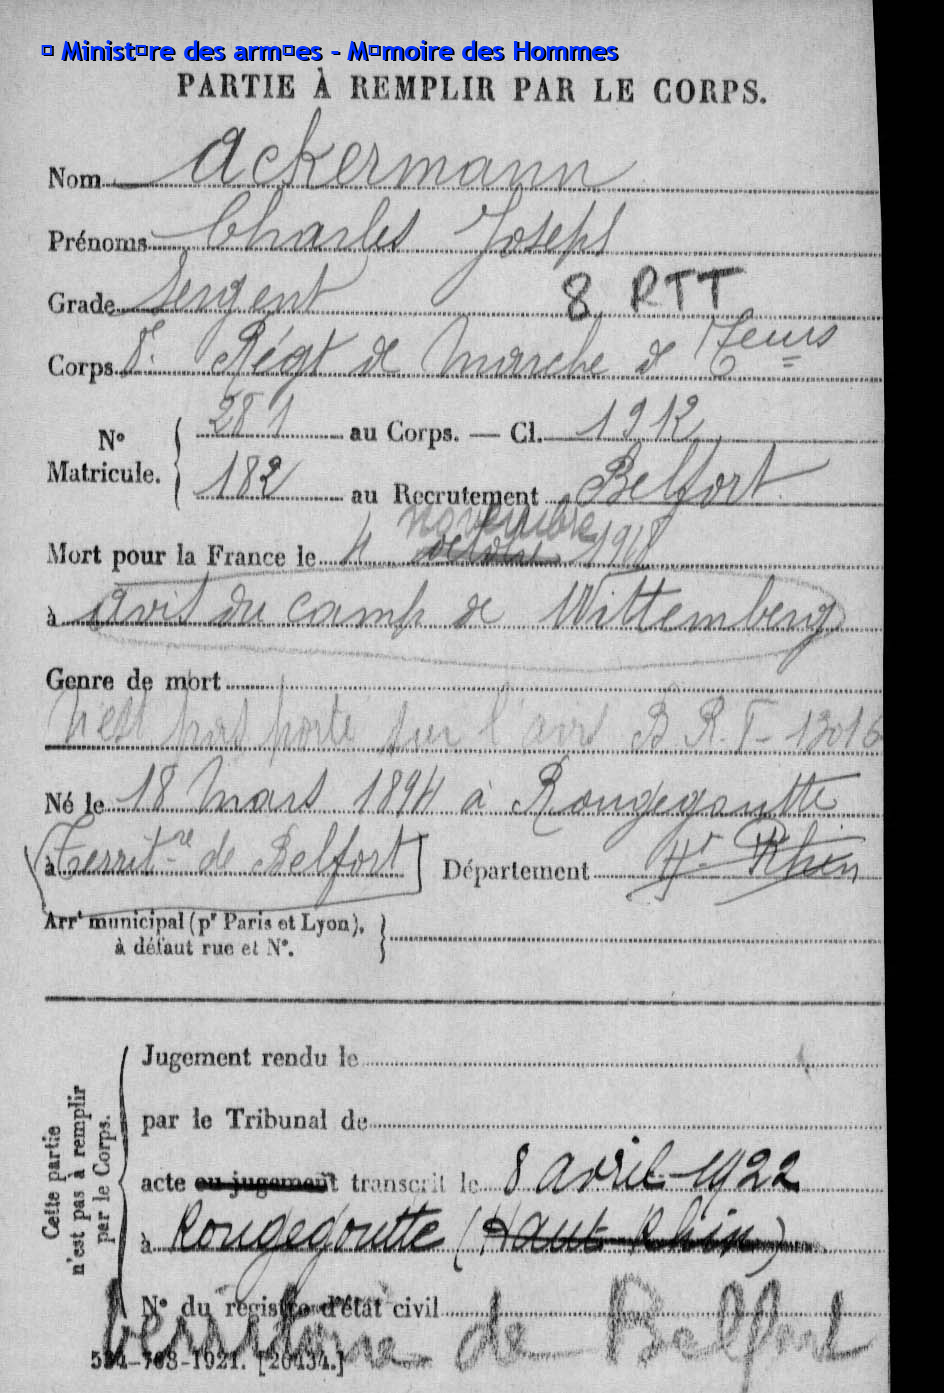 � Minist�re des arm�es - M�moire des Hommes
PARTIE À REMPLIR PAR LE CORPS.
Nom Ackermann
Prénoms Charles Joseph
Grade Sergent 8 RTT
Corps 8e Régt de Marche de Tleurs
N° Matricule. 281 au Corps. — Cl. 1912
182 au Recrutement Belfort
novembre
Mort pour la France le 4 octobre 1918
à avis du camp de Wittemberg
Genre de mort
n'est pas porté sur l'avis B.R.T- 13016
Né le 18 Mars 1894 à Rougegoutte
à Territ-re de Belfort Département Ht Rhin
Arrt municipal (pr Paris et Lyon),
à défaut rue et N°.
Cette partie n'est pas à remplir par le Corps.
Jugement rendu le
par le Tribunal de
acte ou jugement transcrit le 8 avril 1922
à Rougegoutte (Haut Rhin)
N° du registre d'état civil
territoire de Belfort
534-708-1921. [26434.]